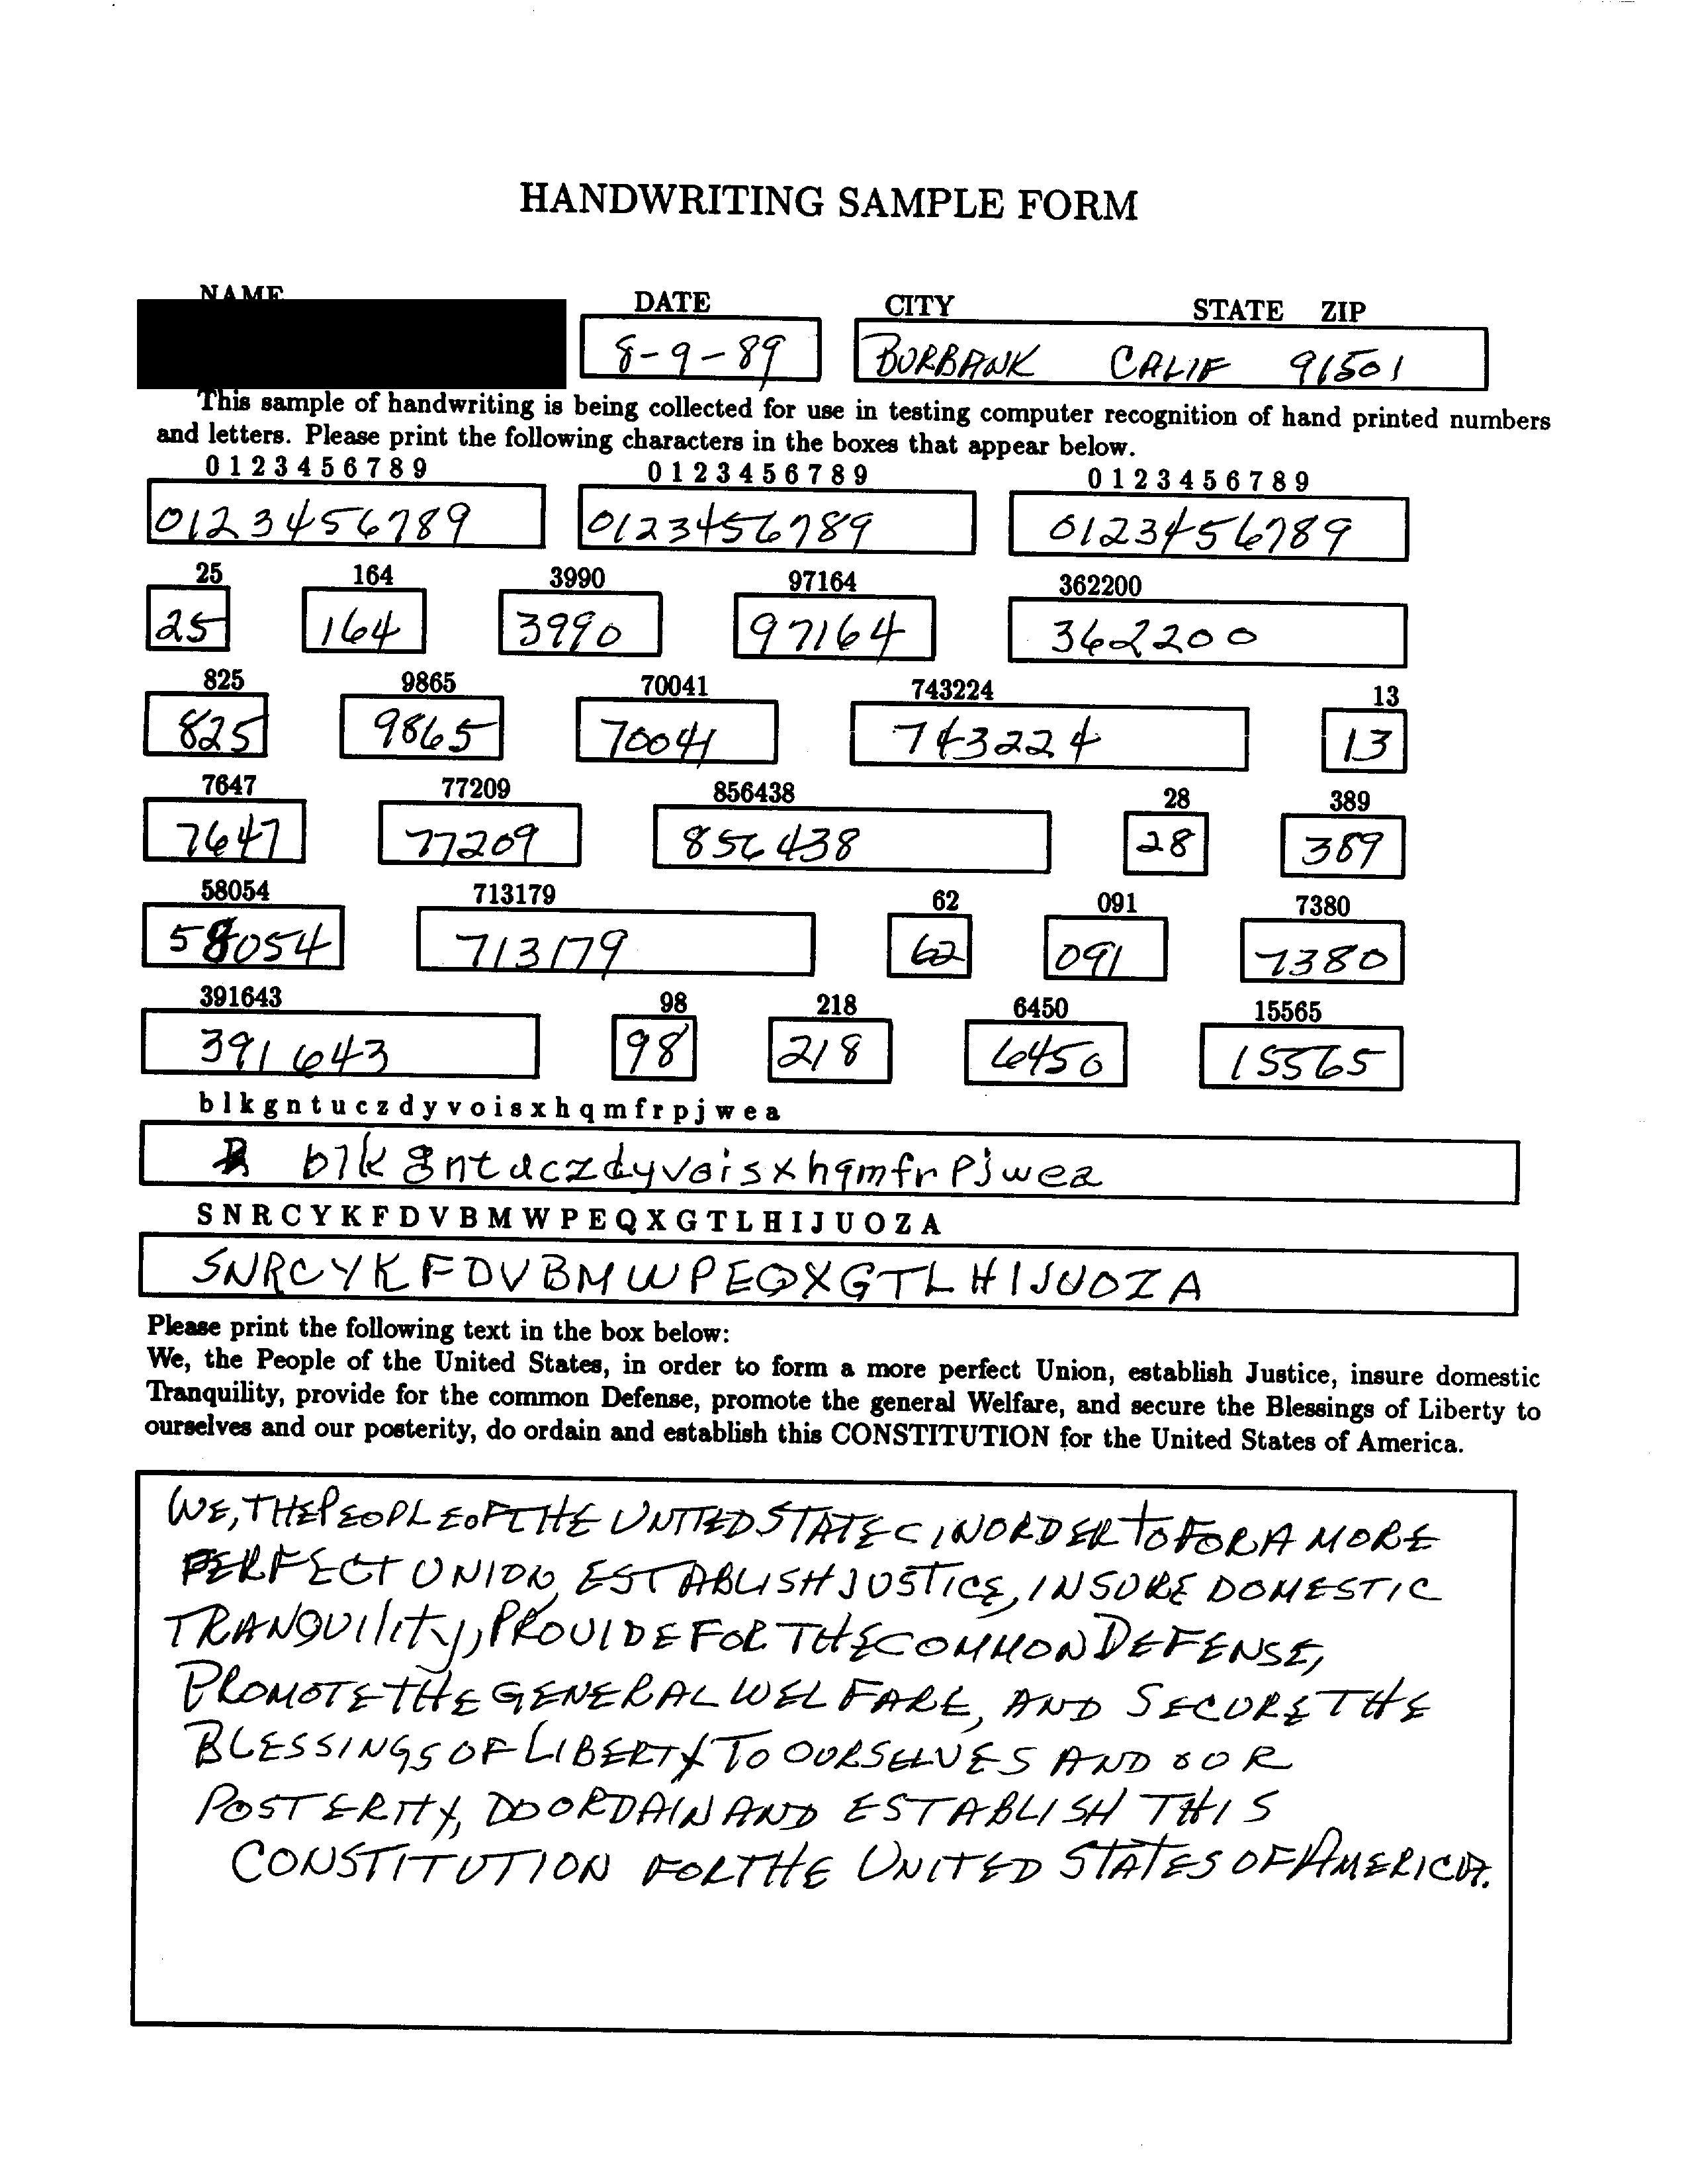 HANDWRITING SAMPLE FORM
NAME DATE CITY STATE ZIP
8-9-89 BURBANK CALIF 91501
This sample of handwriting is being collected for use in testing computer recognition of hand printed numbers
and letters. Please print the following characters in the boxes that appear below.
0 1 2 3 4 5 6 7 8 9 0 1 2 3 4 5 6 7 8 9 0 1 2 3 4 5 6 7 8 9
0123456789 0123456789 0123456789
25 164 3990 97164 362200
25 164 3990 97164 362200
825 9865 70041 743224 13
825 9865 70041 743224 13
7647 77209 856438 28 389
7647 77209 856438 28 389
58054 713179 62 091 7380
58054 713179 62 091 7380
391643 98 218 6450 15565
391643 98 218 6450 15565
b l k g n t u c z d y v o i s x h q m f r p j w e a
blkgntuczdyvoisxhqmfrpjwea
S N R C Y K F D V B M W P E Q X G T L H I J U O Z A
SNRCYKFDVBMWPEQXGTLHIJUOZA
Please print the following text in the box below:
We, the People of the United States, in order to form a more perfect Union, establish Justice, insure domestic
Tranquility, provide for the common Defense, promote the general Welfare, and secure the Blessings of Liberty to
ourselves and our posterity, do ordain and establish this CONSTITUTION for the United States of America.
WE, THE PEOPLE OF THE UNITED STATES IN ORDER TO FOR A MORE
PERFECT UNION, ESTABLISH JUSTICE, INSURE DOMESTIC
TRANQUIlity, PROVIDE FOR THE COMMON DEFENSE,
PROMOTE THE GENERAL WELFARE, AND SECURE THE
BLESSINGS OF LIBERTY TO OURSELVES AND OUR
POSTERITY, DO ORDAIN AND ESTABLISH THIS
CONSTITUTION FOR THE UNITED STATES OF AMERICA.